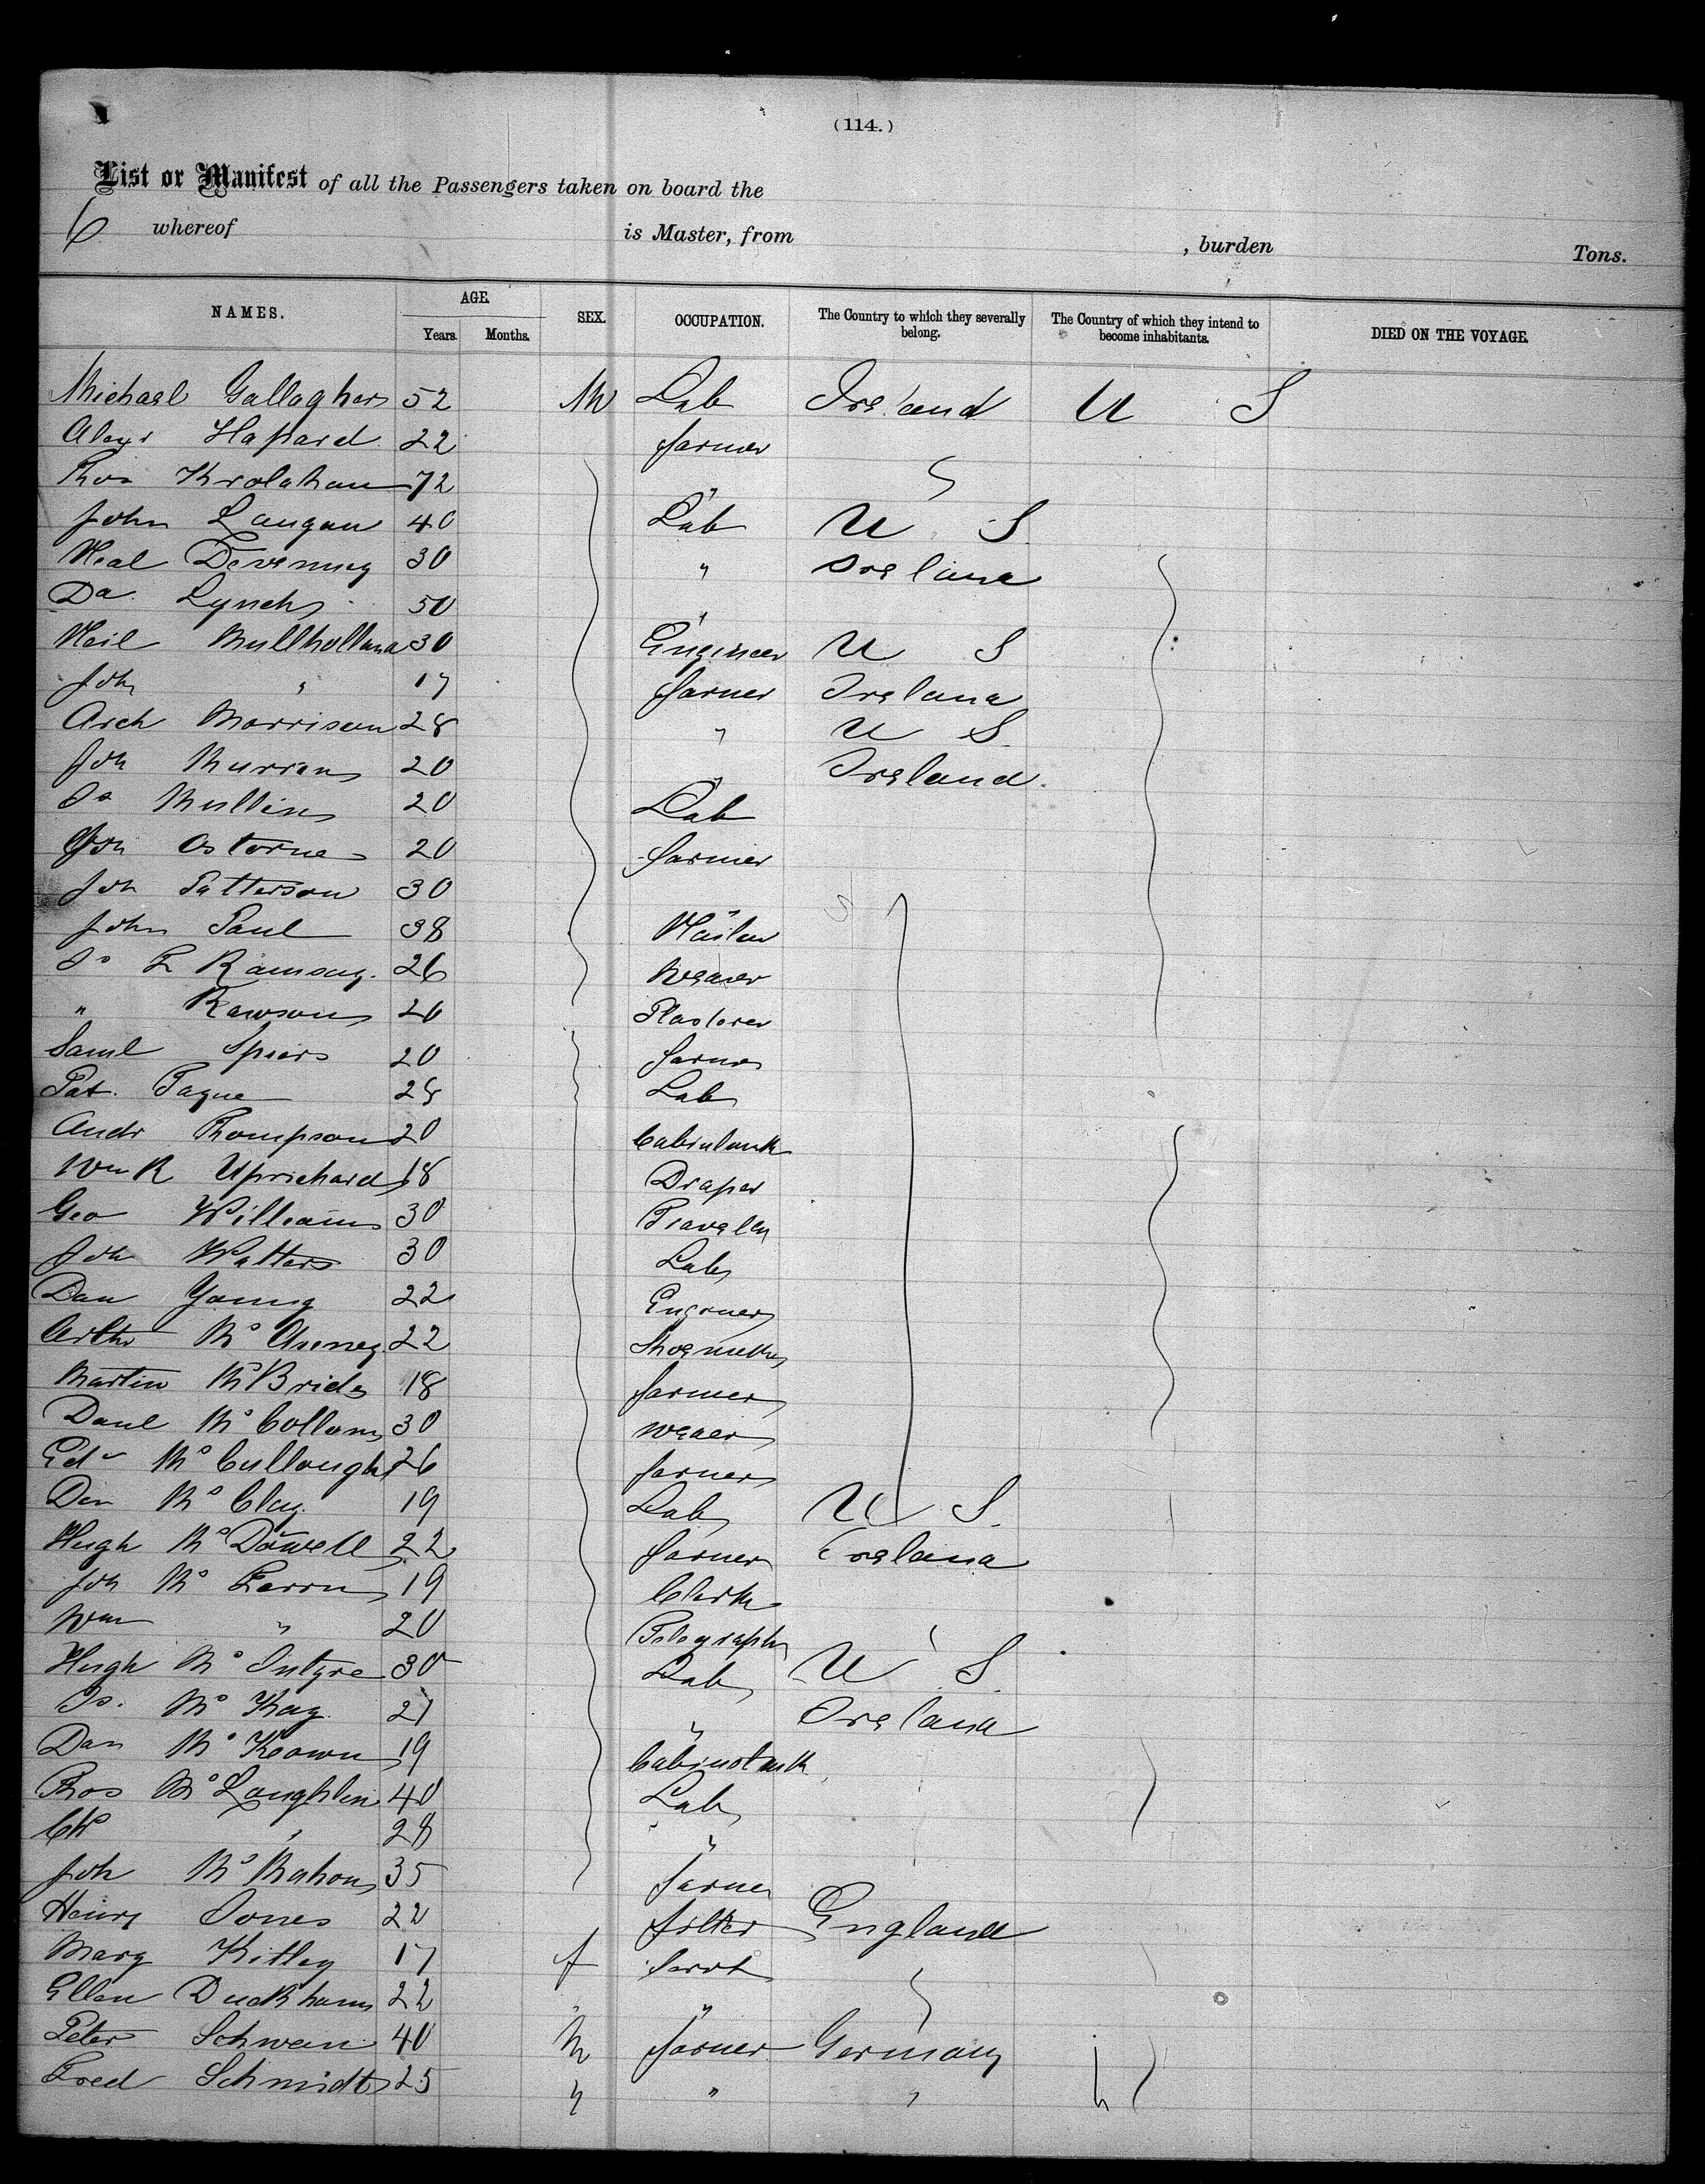 (114.)
List or Manifest of all the Passengers taken on board the
6 whereof is Master, from , burden Tons.
NAMES. AGE. Years. Months. SEX. OCCUPATION. The Country to which they severally belong. The Country of which they intend to become inhabitants. DIED ON THE VOYAGE.
Michael Gallagher 52 M Lab Ireland U S
22 farmer
72 "
John Langan 40 Lab U S
Neal Devenney 30 " Ireland
Da Lynch 50 "
Neil Mullholland 30 Engineer U S
Joh " 17 farmer Ireland
Arch Morrison 28 " U S
Joh 20 " Ireland
Js Mullin 20 Lab
Joh 20 farmer
Joh Patterson 30 "
John Paul 38
Js F Ramsay. 26 Weaver
" Rawson 20 Plasterer
Saml Spiers 20 farmer
Pat. Tague 28 Lab
Andr Thompson 20 Cabinetmk
Wm R Uprichard 18 Draper
Geo Williams 30
Joh Watters 30 Lab
Dan Young 22 Engineer
Arthr 22 Shoemaker
Martin McBride 18 farmer
Danl McCollom 30 Weaver
Edw McCullough 26 farmer
Dan McClay 19 Lab U S
Hugh McDowell 22 farmer Ireland
Joh 19 Clerk
Wm " 20
Hugh McIntyre 30 Lab U S
Js. McKay 21 " Ireland
Dan McKeown 19 Cabinetmk
Thos McLaughlin 40 Lab
" 28 "
Joh McMahon 35 farmer
Henry Jones 22 fitter England
Mary Kitley 17 f Servt
Ellen Duckham 22 " "
Peter Schwan 40 M farmer Germany
Fred Schmidt 25 " " "